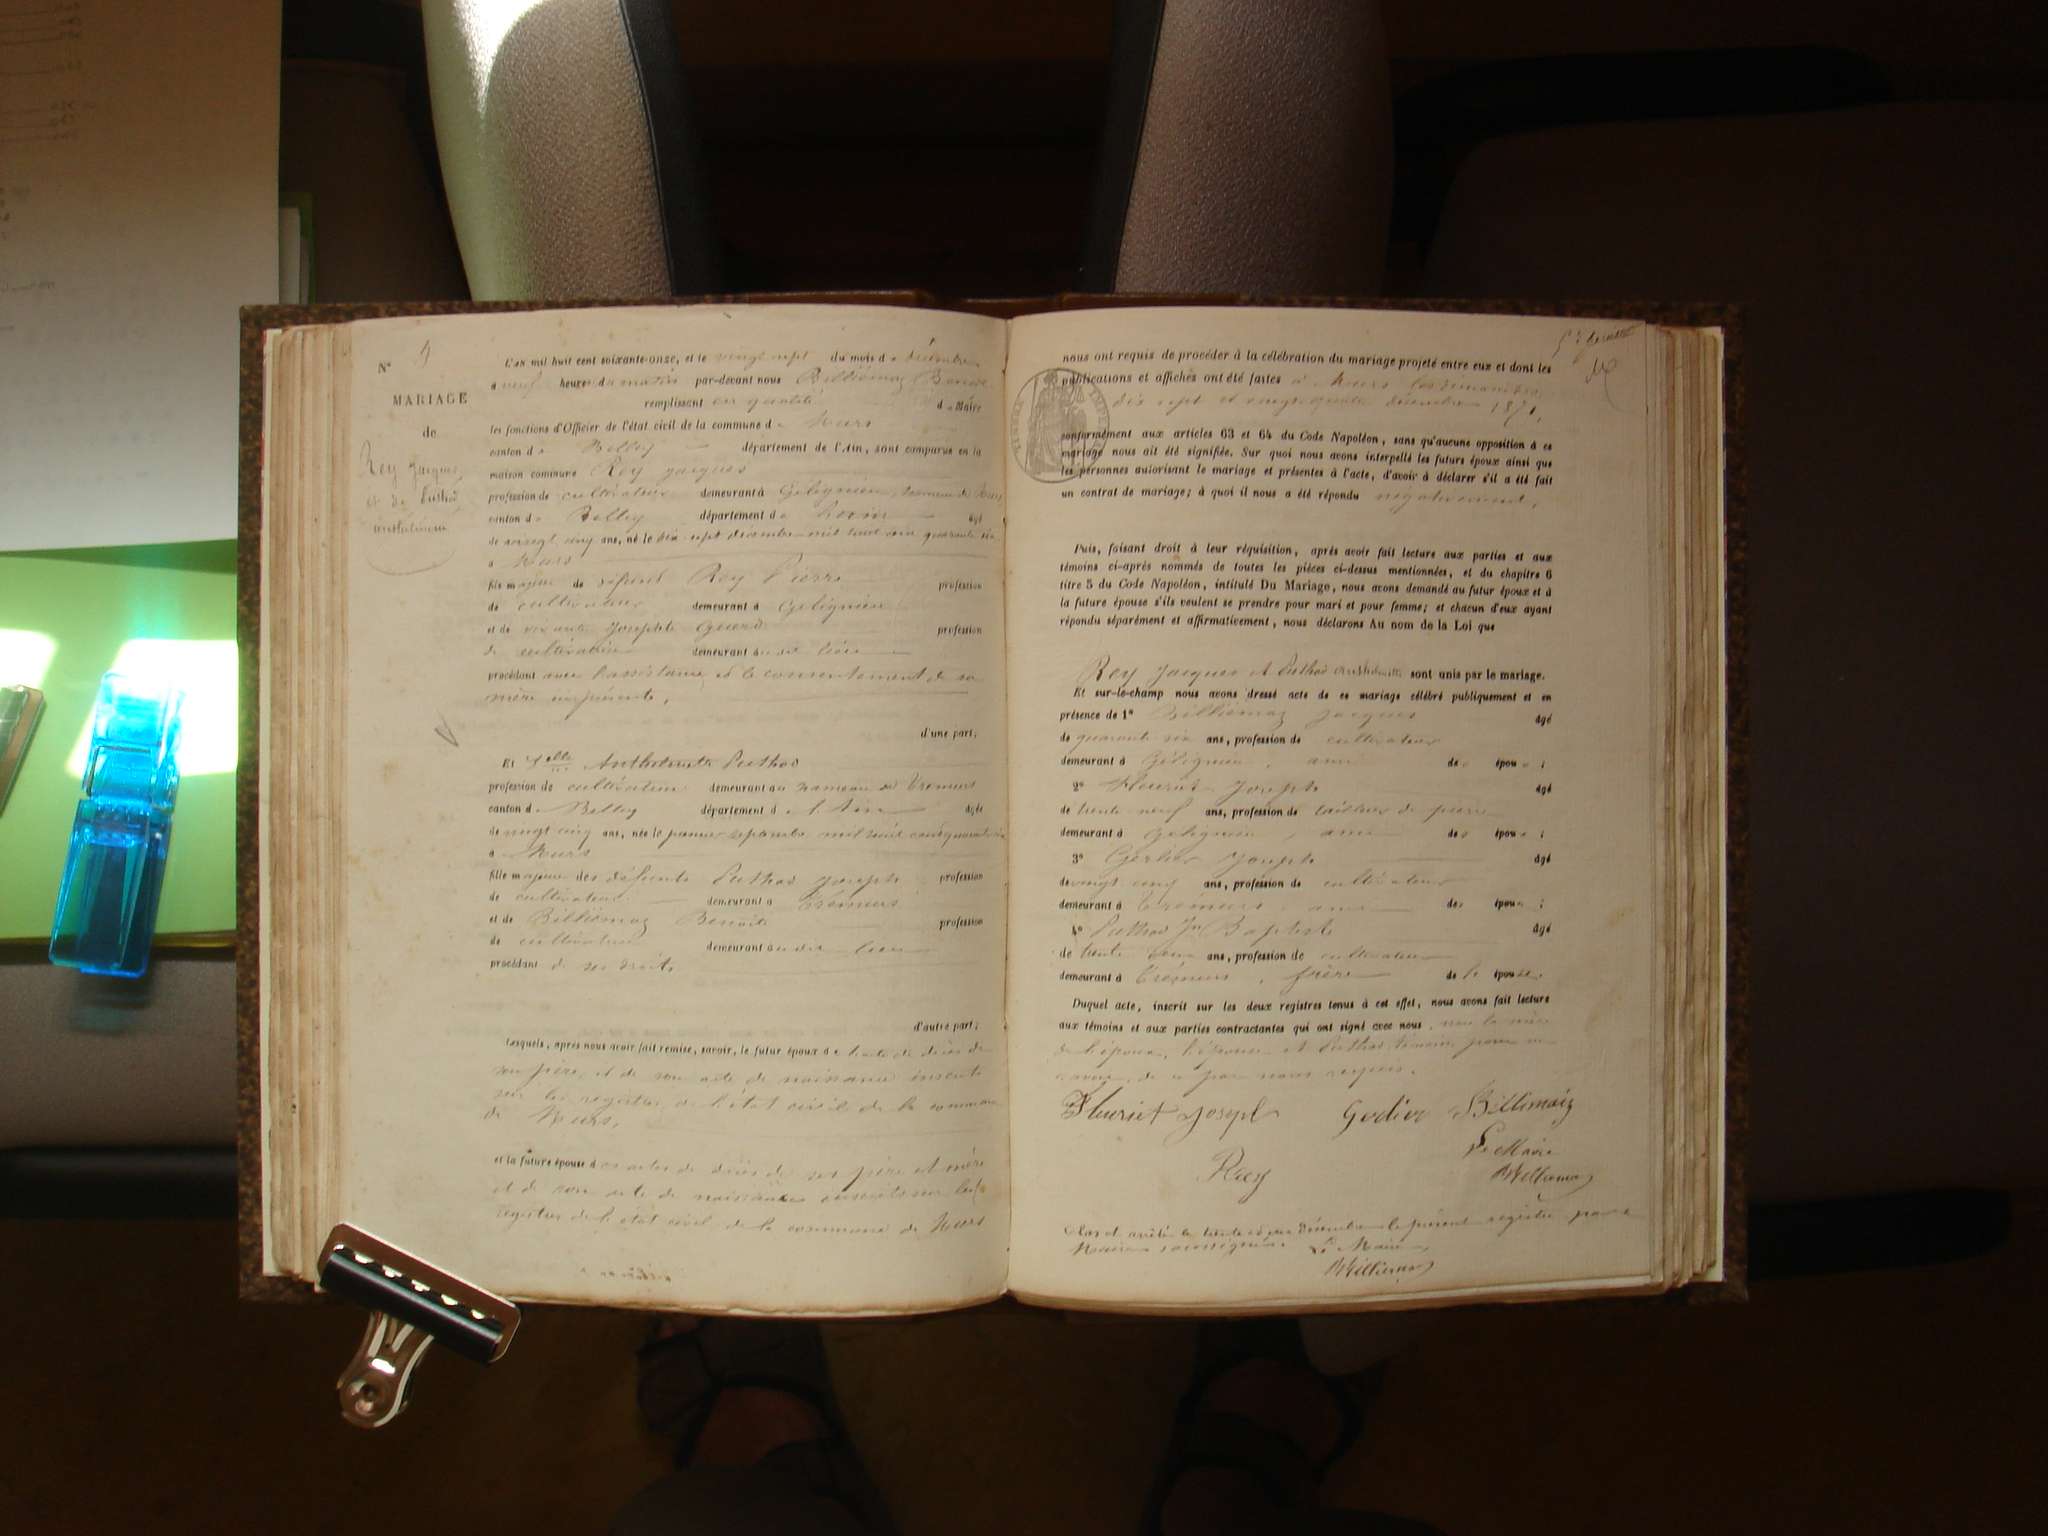 N° 9
MARIAGE
de
Rey Jacques
et de Puthod
Anthelmette
L'an mil huit cent soixante-onze, et le vingt sept du mois de décembre
à neuf heures du matin par-devant nous Billiémaz Benoît
remplissant en qualité de Maire
les fonctions d'Officier de l'état civil de la commune de Murs
canton de Belley département de l'Ain, sont comparus en la
maison commune Rey Jacques
profession de cultivateur demeurant à Gélignieu, hameau de Murs
canton de Belley département de l'Ain âgé
de vingt cinq ans, né le dix sept décembre mil huit cent quarante six
à Murs
fils majeur de défunt Rey Pierre profession
de cultivateur demeurant à Gélignieu
et de vivante Josephte profession
de cultivatrice demeurant au dit lieu
procédant avec l'assistance et le consentement de sa
mère ici présente,
d'une part;
Et Delle Anthelmette Puthod
profession de cultivateur demeurant au hameau de Crémeurs
canton de Belley département de l'Ain âgée
de vingt cinq ans, née le premier septembre mil huit cent quarante six
à Murs
fille majeure des défunts Puthod Joseph profession
de cultivateur demeurant à Crémeurs
et de Billiémaz Benoîte profession
de cultivateur demeurant au dit lieu
procédant de ses droits
d'autre part;
Lesquels, après nous avoir fait remise, savoir, le futur époux de l'acte de décès de
son père, et de son acte de naissance inscrits
sur les registres de l'état civil de la commune
de Murs,
et la future épouse des actes de décès de ses père et mère
et de son acte de naissance inscrits sur les
registres de l'état civil de la commune de Murs
nous ont requis de procéder à la célébration du mariage projeté entre eux et dont les
publications et affiches ont été faites à Murs les dimanches
dix sept et vingt quatre décembre 1871,
TIMBRE IMPERIAL
conformément aux articles 63 et 64 du Code Napoléon, sans qu'aucune opposition à ce
mariage nous ait été signifiée. Sur quoi nous avons interpellé les futurs époux ainsi que
les personnes autorisant le mariage et présentes à l'acte, d'avoir à déclarer s'il a été fait
un contrat de mariage; à quoi il nous a été répondu négativement,
Puis, faisant droit à leur réquisition, après avoir fait lecture aux parties et aux
témoins ci-après nommés de toutes les pièces ci-dessus mentionnées, et du chapitre 6
titre 5 du Code Napoléon, intitulé Du Mariage, nous avons demandé au futur époux et à
la future épouse s'ils veulent se prendre pour mari et pour femme; et chacun d'eux ayant
répondu séparément et affirmativement, nous déclarons Au nom de la Loi que
Rey Jacques et Puthod Anthelmette sont unis par le mariage.
Et sur-le-champ nous avons dressé acte de ce mariage célébré publiquement et en
présence de 1° Billiémaz Jacques âgé
de quarante six ans, profession de cultivateur
demeurant à Gélignieu, ami des époux;
2° Fleuriet Joseph âgé
de trente neuf ans, profession de tailleur de pierre
demeurant à Gélignieu, ami des époux;
3° Joseph âgé
de vingt cinq ans, profession de cultivateur
demeurant à Crémeurs, ami des époux;
4° Puthod Jn Baptiste âgé
de trente deux ans, profession de cultivateur
demeurant à Crémeurs, frère de l'épouse.
Duquel acte, inscrit sur les deux registres tenus à cet effet, nous avons fait lecture
aux témoins et aux parties contractantes qui ont signé avec nous, non la mère
de l'époux, l'épouse et Puthod témoin pour ne
savoir, de ce par nous requis.
Fleuriet Joseph Billiemaz
Rey
Le Maire
Billiemaz
Clos et arrêté le trente et un Décembre le présent registre par le
Maire soussigné. Le Maire
Billiemaz